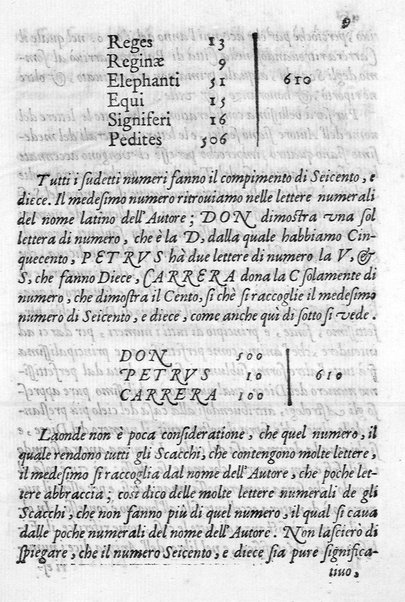 9
Reges 13
Reginæ 9
Elephanti 51
Equi 15
Signiferi 16
Pedites 506
610
Tutti i sudetti numeri fanno il compimento di Seicento, e
diece. Il medesimo numero ritroviamo nelle lettere numerali
del nome latino dell'Autore; DON dimostra vna sol
lettera di numero, che è la D, dalla quale habbiamo Cin-
quecento, PETRVS hà due lettere di numero la V, &
S, che fanno Diece, CARRERA dona la C solamente di
numero, che dimostra il Cento, sì chè si raccoglie il medesimo
numero di Seicento, e diece, come anche quì di sotto si vede.
DON 500
PETRVS 10
CARRERA 100
610
Laonde non è poca consideratione, che quel numero, il
quale rendono tutti gli Scacchi, che contengono molte lettere,
il medesimo si raccoglia dal nome dell'Autore, che poche let-
tere abbraccia; così dico delle molte lettere numerali de gli
Scacchi, che non fanno più di quel numero, il qual si caua
dalle poche numerali del nome dell'Autore. Non lascierò di
spiegare, che il numero Seicento, e diece sia pure significa-
tiuo,